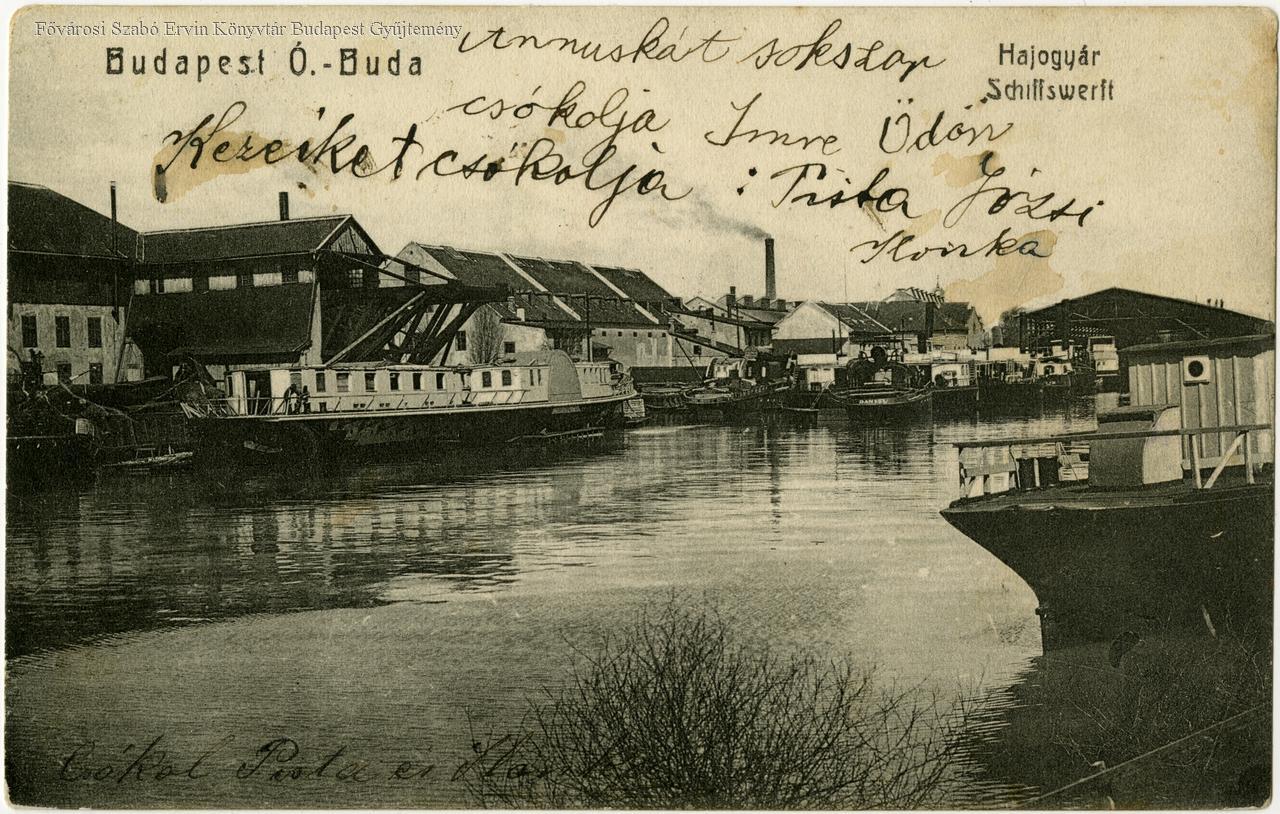 Fővárosi Szabó Ervin Könyvtár Budapest Gyűjtemény
Budapest Ó.-Buda
Hajogyár
Schiffswerft
Annuskát sokszor
csókolja Imre Ödön
Kezeiket csókolja : Pista Józsi
Ilonka
Csókol Pista és Ilonka